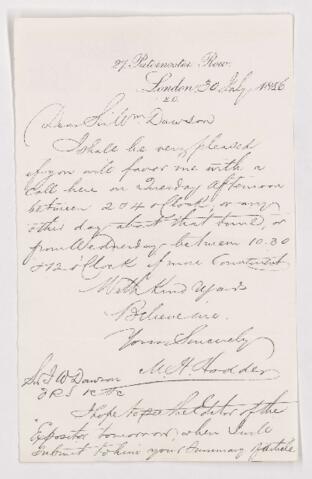 27, Paternoster Row,
London 30 July, 1886
E.C.
Dear Sir Wm Dawson
I shall be very pleased
if you will favor me with a
call here on Tuesday afternoon
between 2 & 4 o'Clock, or any
other day about that time, or
from Wednesday between 10.30
& 12 o'Clock if more Convenient
With Kind
Believe me
Yours Sincerely
M. H. Hodder
Sir J W Dawson
F R S &c &c
I hope to see the Editor of the
Expositor tomorrow, when I will
submit to him your Summary of Article